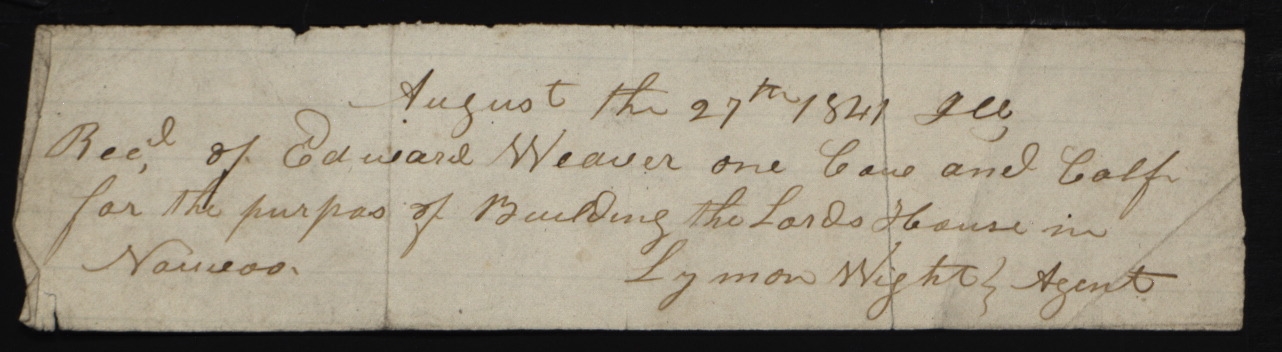 August the 27th 1841 Ill
Rec,d of Edward Weaver one Cow and Calf
for the purpos of Building the Lords House in
Nawvoo.
Lymon Wight } Agent